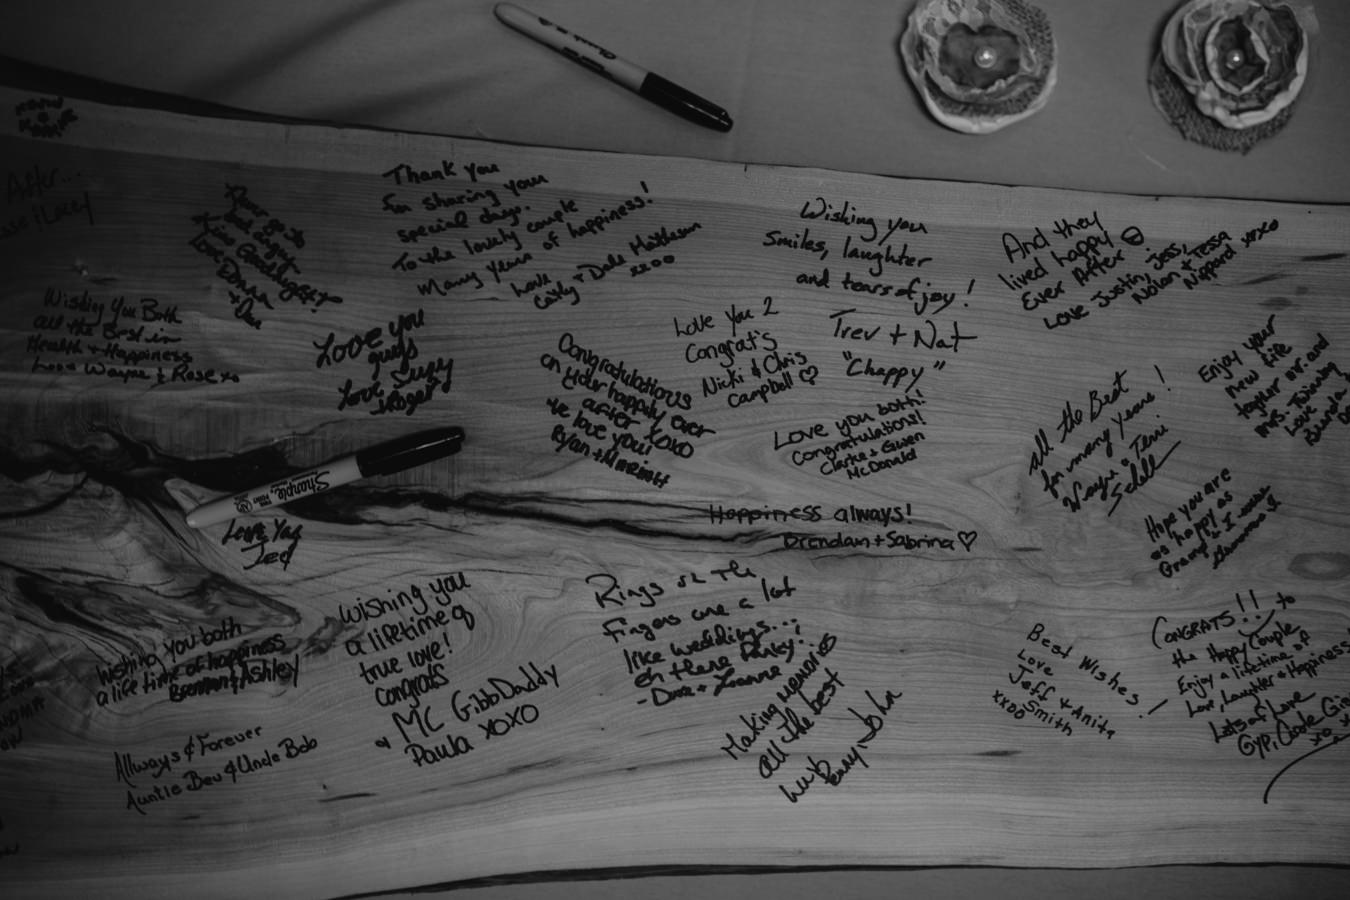 After...
Thank you
for sharing your
special days.
To the lovely couple
Many years of happiness!
Love
Cathy + Dale Matheson
xxoo
Wishing you
Smiles, laughter
and tears of joy!
Trev + Nat
"Chappy"
And they
lived happy
Ever After
Love Justin, Jess,
Nolan + Tessa
Nippard xoxo
Wishing You Both
all the Best in
Health + Happiness
Love Wayne & Rose xo
Love you
guys
Love Suzy
& Roger
Congratulations
on your happily ever
after xoxo
We love you!
Ryan +
Love You 2
Congrats
Nicki & Chris
Campbell ♡
Love you both!
Congratulations!
Clarke + Gwen
McDonald
All the Best
for many years!
Wayne & Terri
Enjoy your
new life
together Mr. and
Mrs.
Love
Hope you are
as happy as
Happiness always!
Brendan + Sabrina ♡
Sharpie
Love Ya
Jed
Wishing you both
a life time of happiness
Brennan & Ashley
Wishing you
a lifetime of
true love!
Congrats
MC GibbDaddy
Paula XOXO
Rings on the
fingers are a lot
like weddings...
Allways & Forever
Auntie Bev & Uncle Bob
Making memories
All the best
Love
John
Best Wishes!
Love
Jeff & Anita
Smith
xxoo
CONGRATS!! to
the Happy Couple
Enjoy a lifetime of
Love, Laughter & Happiness
Lots of Love